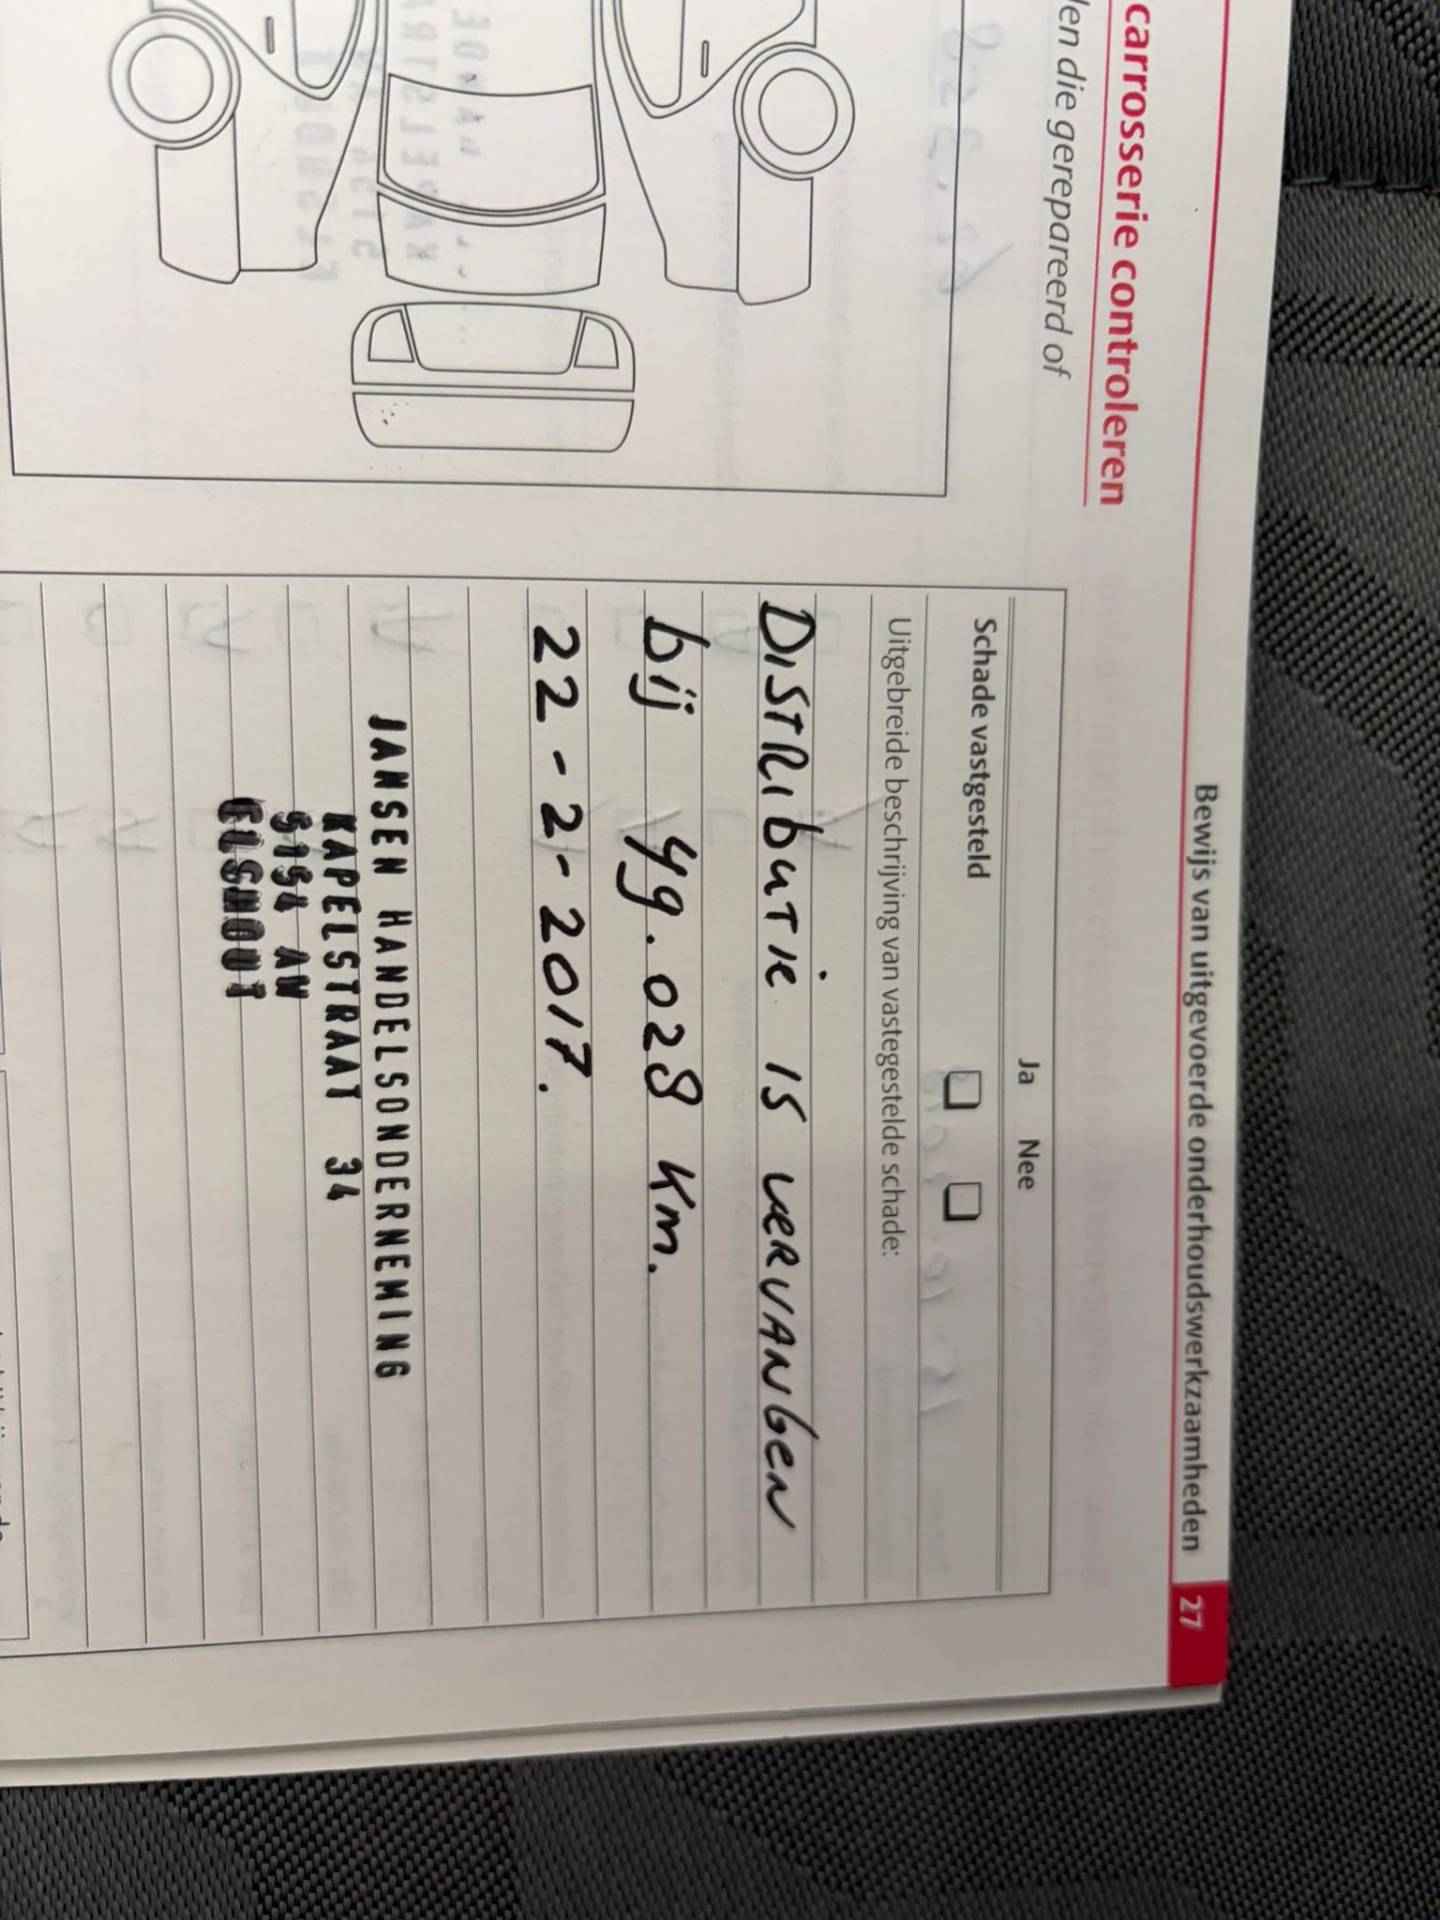 Bewijs van uitgevoerde onderhoudswerkzaamheden 27
carrosserie controleren
die gerepareerd of
Ja Nee
Schade vastgesteld
Uitgebreide beschrijving van vastegestelde schade:
DISTRIbUTIE IS VERVANGEN
bij 49.028 Km.
22-2-2017.
JANSEN HANDELSONDERNEMING
KAPELSTRAAT 34
5154 AW
ELSHOUT